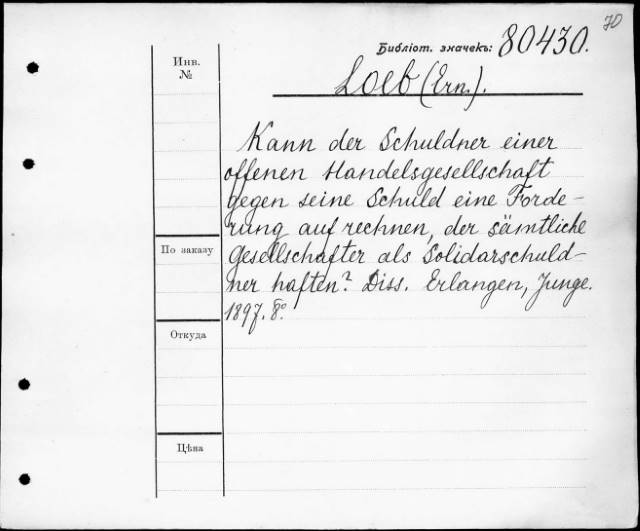 70
Библіот. значекъ: 80430.
Инв.
№
Loeb (Ern.).
Kann der Schuldner einer
offenen Handelsgesellschaft
gegen seine Schuld eine Forde-
rung aufrechnen, der sämtliche
Gesellschafter als Solidarschuld-
ner haften? Diss. Erlangen, Junge.
1897. 8º.
По заказу
Откуда
Цѣна